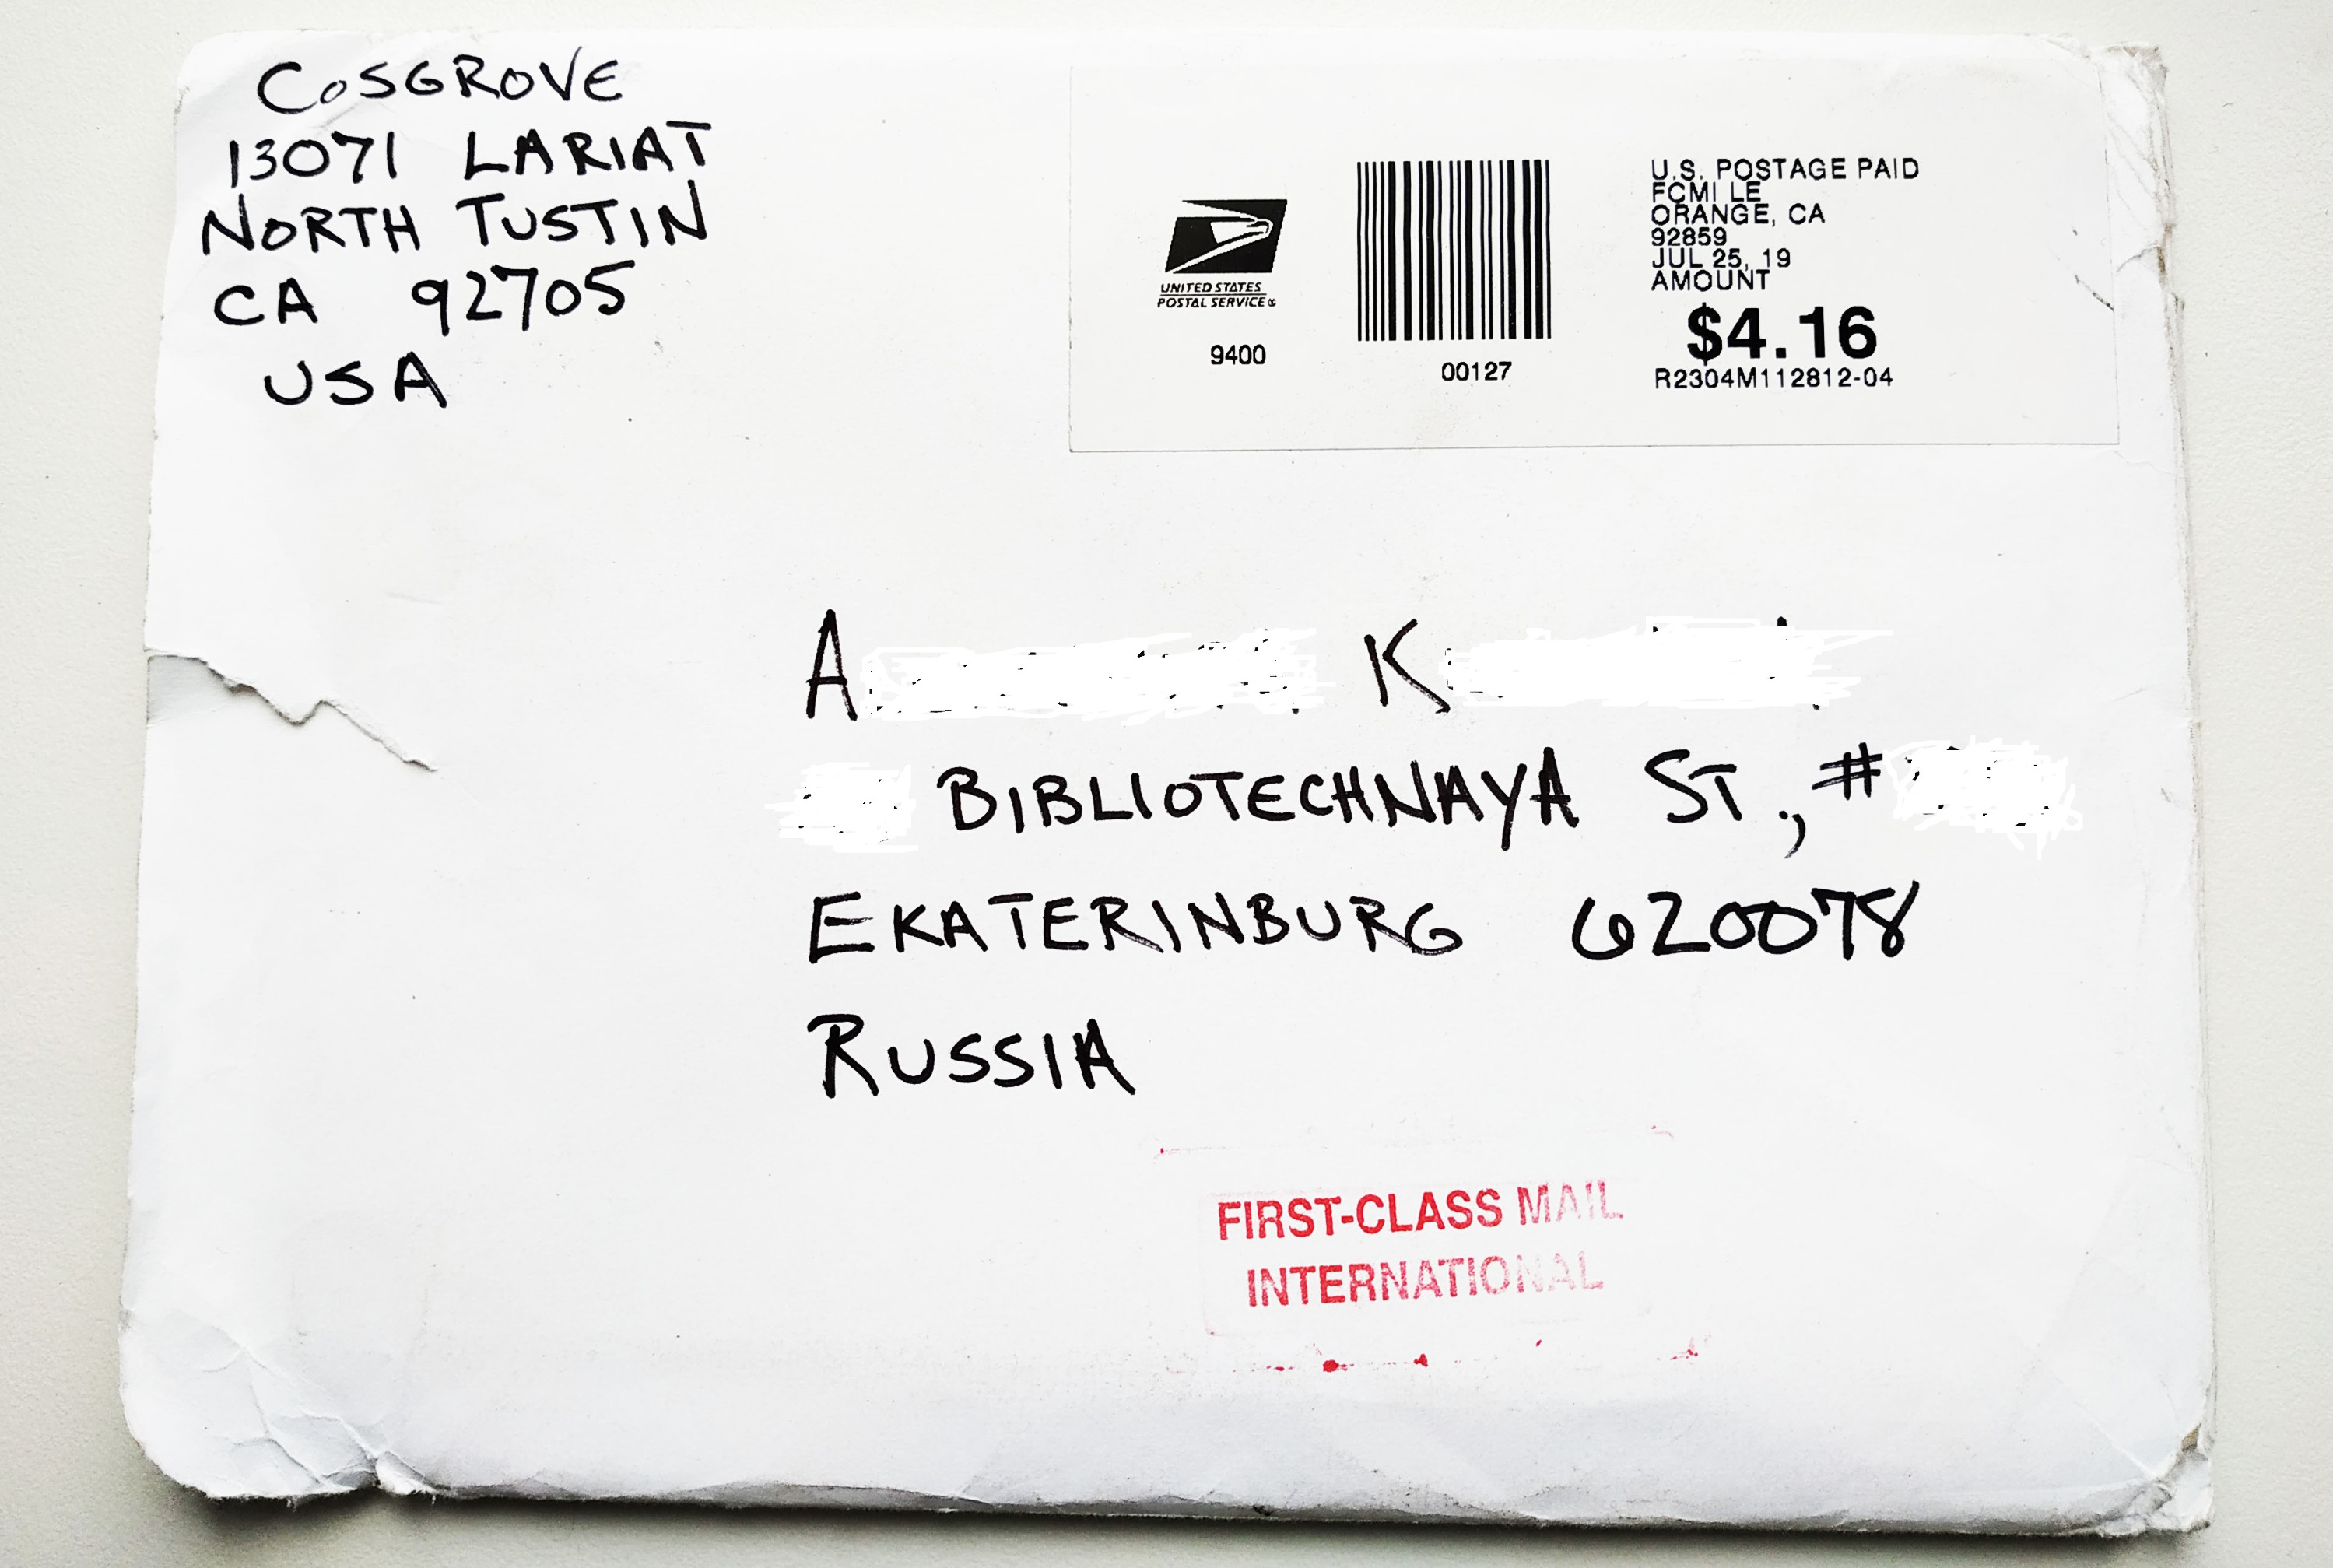 COSGROVE
13071 LARIAT
NORTH TUSTIN
CA 92705
USA
UNITED STATES
POSTAL SERVICE®
9400
00127
U.S. POSTAGE PAID
FCMI LE
ORANGE, CA
92859
JUL 25, 19
AMOUNT
$4.16
R2304M112812-04
A K
BIBLIOTECHNAYA ST., #
EKATERINBURG 620078
RUSSIA
FIRST-CLASS MAIL
INTERNATIONAL